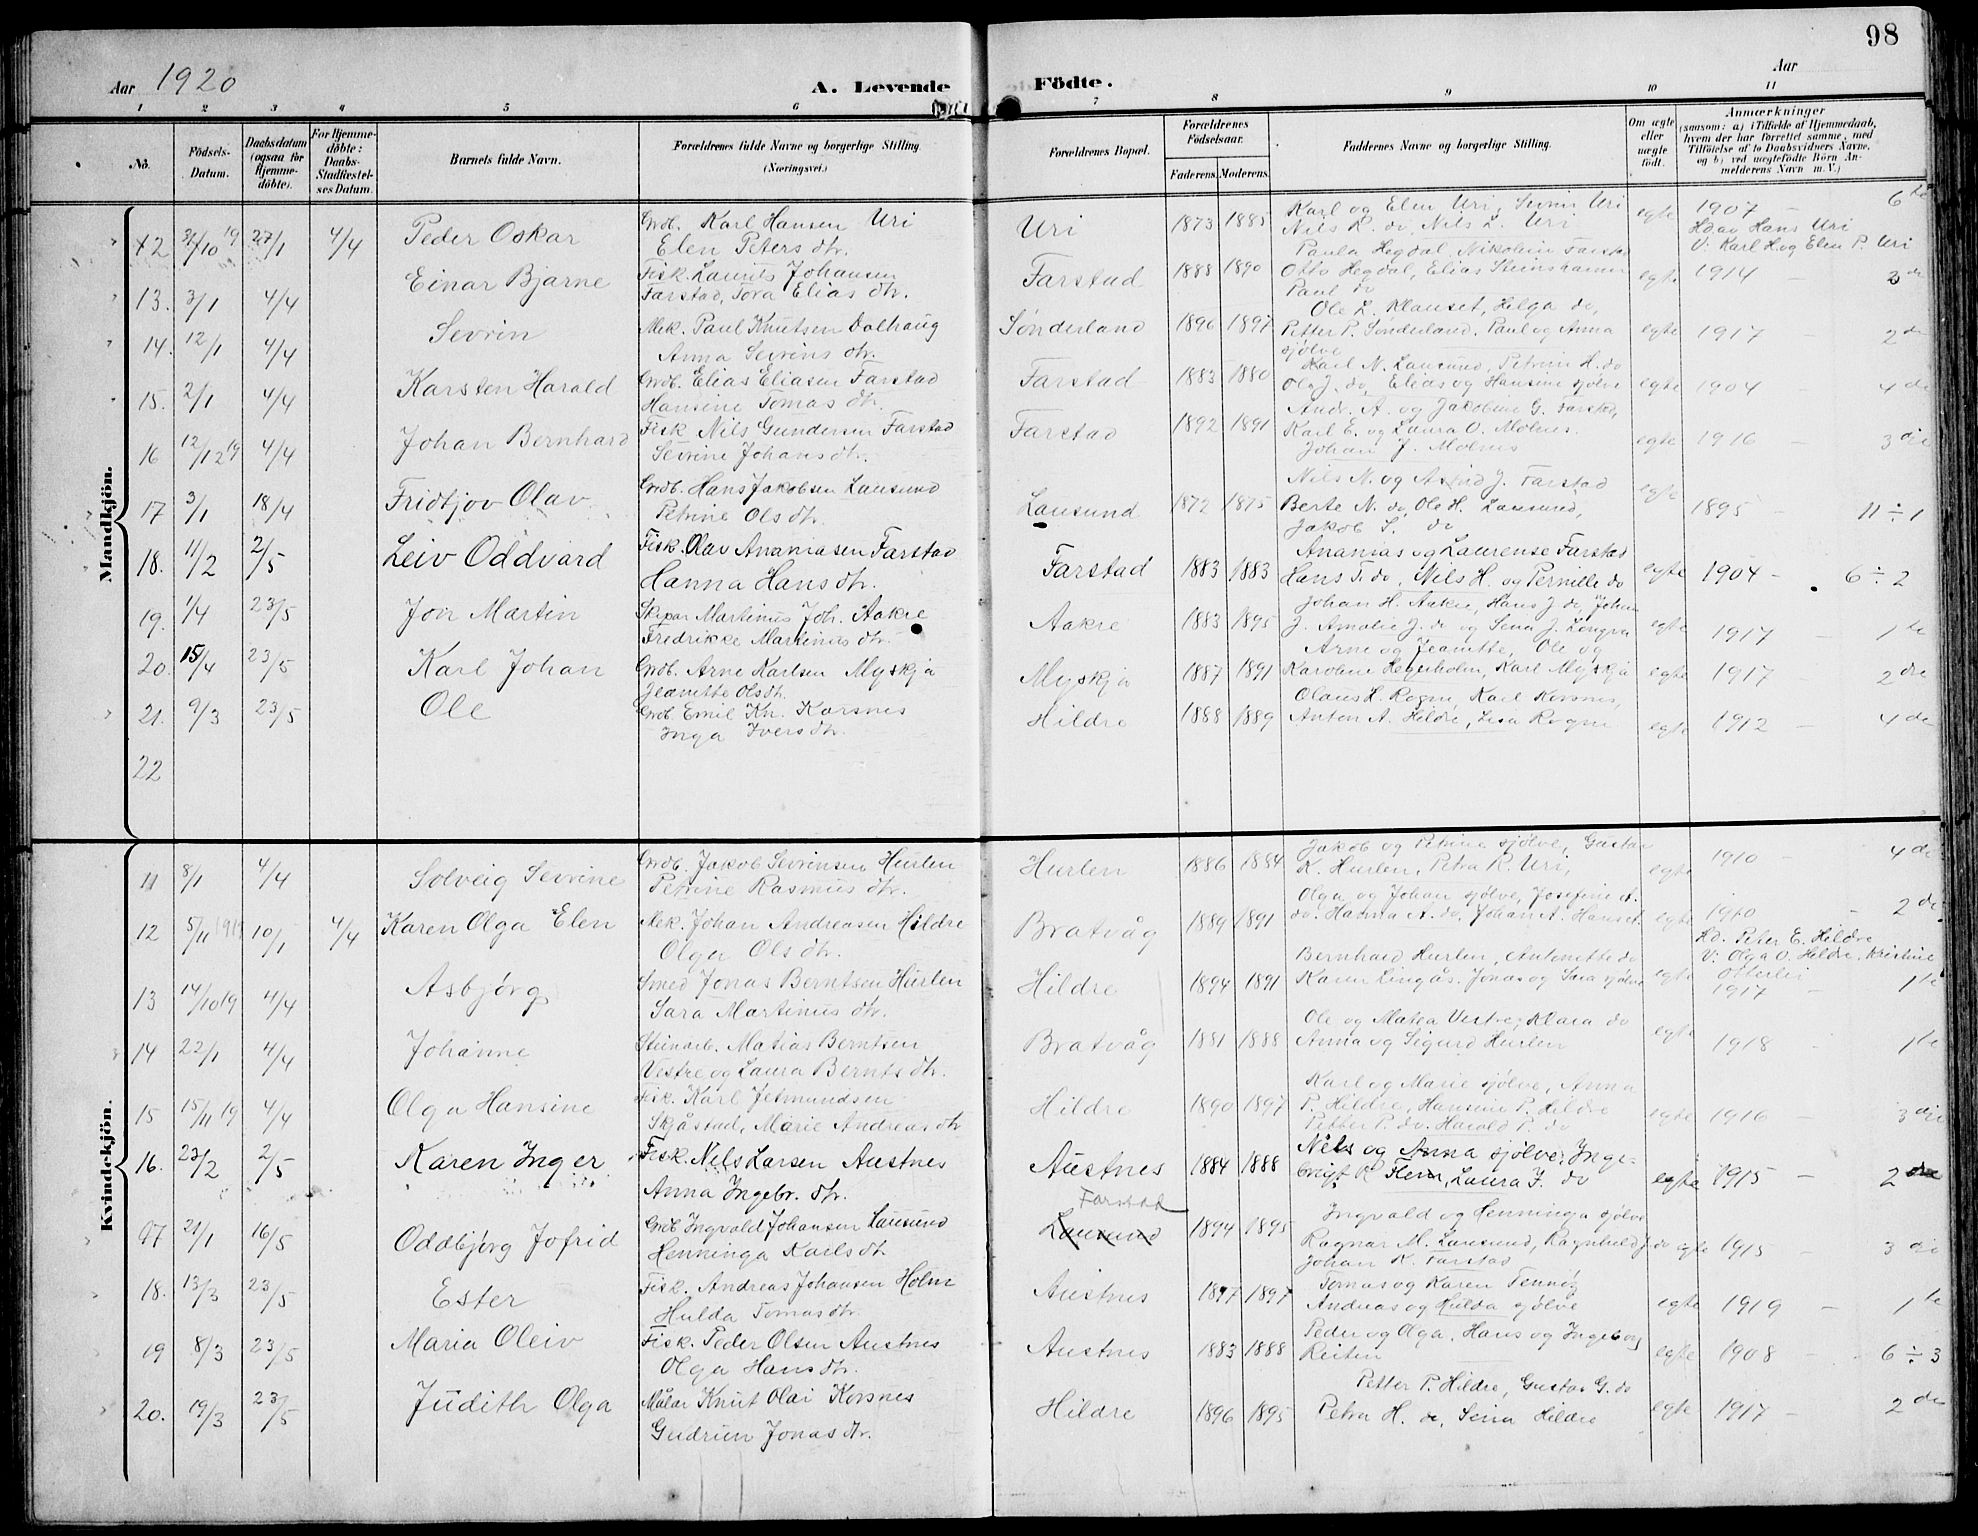 98
Aar 1920
A. Levende Födte.
Aar
1 2 3 4 5 6 7 8 9 10 11
No.
Födsels-Datum.
Daabsdatum (ogsaa for Hjemmedöbte).
For Hjemmedöbte: Daabs-Stadfæstelses Datum.
Barnets fulde Navn.
Forældrenes fulde Navne og borgerlige Stilling. (Næringsvei.)
Forældrenes Bopæl.
Forældrenes Födselsaar.
Faderens. Moderens.
Faddernes Navne og borgerlige Stilling.
Om ægte eller uægte födt.
Anmærkninger
(saasom: a) i Tilfælde af Hjemmedaab, hvem der har forrettet samme, med Tilföielse af to Daabsvidners Navne, og b) ved uægtefödte Börn Anmelderens Navn m. V.)
Mandkjön.
12 31/10 19 27/1 4/4 Peder Oskar Grdb. Karl Hansen Uri Elen Peters dtr. Uri 1873 1885 Karl og Elen Uri, Sevrin Uri Nils K. do, Nils L. Uri egte 1907 – 6te Hdøv Hans Uri V: Karl H. og Elen P. Uri
13. 3/1 4/4 Einar Bjarne Fisk. Laurits Johansen Farstad, Tora Elias dtr. Farstad 1888 1890 Paula Hegdal, Nikoline Farstad Otto Hegdal, Elias Steinshamn Paul do egte 1914 – 3de
14. 12/1 4/4 Sevrin Mek. Paul Knutsen Dalhaug Anna Sevrins dtr. Sønderland 1896 1897 Ole L. Klauset, Helga do, Petter P. Sønderland, Paul og Anna sjølve egte 1917 – 2den
15. 2/1 4/4 Karsten Harald Grdb. Elias Eliasen Farstad Hansine Tomas dtr. Farstad 1883 1880 Karl N. Lausund, Petrine H. do Ole J. do, Elias og Hansine sjølve egte 1904 – 4de
16 12/12 19 4/4 Johan Bernhard Fisk Nils Gundersen Farstad Sevrine Johans dtr. Farstad 1892 1891 Andr. A. og Jakobine G. Farstad, Karl E. og Laura O. Molnes. Johan J. Molnes egte 1916 – 3die
17 3/1 18/4 Fridtjov Olav Grdb. Hans Jakobsen Lausund Petrine Ols dtr. Lausund 1872 1875 Nils N. og Astrid J. Farstad Berte N. do, Ole H. Lausund, Jakob S. do egte 1895 – 11 ÷ 1
18. 11/2 2/5 Leiv Oddvard Fisk. Olav Ananiasen Farstad Hanna Hans dtr. Farstad 1883 1883 Ananias og Laurense Farstad Hans T. do, Nils H. og Pernille do egte 1904 – 6 ÷ 2
19. 1/4 23/5 Jon Martin Skipar Martinus Joh. Aakre Fredrikke Martinus dtr. Aakre 1883 1895 Johan H. Aakre, Hans J. do, Johan J. Amalie J. do og Sena J. Longva egte 1917 – 1te
20. 15/4 23/5 Karl Johan Grdb. Arne Karlsen Myskja Jeanette Ols dtr. Myskja 1887 1891 Arne og Jeanette, Ole og Karoline Hegerholm, Karl Myskja egte 1917 – 2dre
21. 9/3 23/5 Ole Grdb. Emil Kn. Korsnes Inga Ivers dtr. Hildre 1888 1889 Olaus H. Rogne, Karl Korsnes, Anton A. Hildre, Lisa Rogne egte 1912 – 4de
22
Kvindekjön.
11 8/1 4/4 Solveig Sevrine Grdb. Jakob Sevrinsen Hurlen Petrine Rasmus dtr. Hurlen 1886 1884 Jakob og Petrine sjølve, Gustav K. Hurlen, Petra R. Uri, egte 1910 – 4de
12 5/11 1919 10/1 4/4 Karen Olga Elen Mek. Johan Andreasen Hildre Olga Ols dtr. Bratvåg 1889 1891 Olga og Johan sjølve, Josefine A. do. Hanna A. do, Johan A. Hanset egte 1910 – 2de Hd. Peter E. Hildre V: Olga O. Hildre, Kristine Otterlei
13 14/10 19 4/4 Asbjørg Smed Jonas Berntsen Hurlen Sara Martinus dtr. Hildre 1894 1891 Bernhard Hurlen, Antonette do Karen Ringås, Jonas og Sara sjølve egte 1917 – 1te
14 22/1 4/4 Johanne Steinarb. Matias Berntsen Vestre og Laura Bernts dtr. Bratvåg 1881 1888 Ole og Matea Vestre, Klara do Anna og Sigurd Hurlen egte 1918 – 1te
15 15/11 19 4/4 Olga Hansine Fisk. Karl Jetmundsen Skjåstad, Marie Andreas dtr Hildre 1890 1897 Karl og Marie sjølve, Anna P. Hildre, Hansine P. Hildre Petter P. do. Harald P. do egte 1916 – 3die
16. 23/2 2/5 Karen Inger Fisk. Nils Larsen Austnes Anna Ingebr. dtr. Austnes 1884 1888 Nils og Anna sjølve, Inge- brigt K Flem, Laura J. do egte 1915 – 2dre
17 21/1 16/5 Oddbjørg Jofrid Grdb Ingvald Johansen Lausund Henninga Karls dtr Farstad Lausund 1894 1895 Ingvald og Henninga sjølve Ragnar M. Lausund, Ragnhild J. do Johan K. Farstad egte 1915 – 3die
18. 13/3 23/5 Ester Fisk. Andreas Johansen Holm Hulda Tomas dtr. Austnes 1897 1897 Tomas og Karen Tennøy Andreas og Hulda sjølve egte 1919 – 1te
19 8/3 23/5 Maria Oleiv Fisk. Peder Olsen Austnes Olga Hans dtr. Austnes 1883 1888 Peder og Olga, Hans og Ingeborg Reiten egte 1908 – 6 ÷ 3
20. 19/3 23/5 Judith Olga Målar Knut Olai Korsnes Gudrun Jonas dtr. Hildre 1896 1895 Petter P. Hildre, Gustav G. do Petra H. do, Seria Hildre egte 1917 – 2den